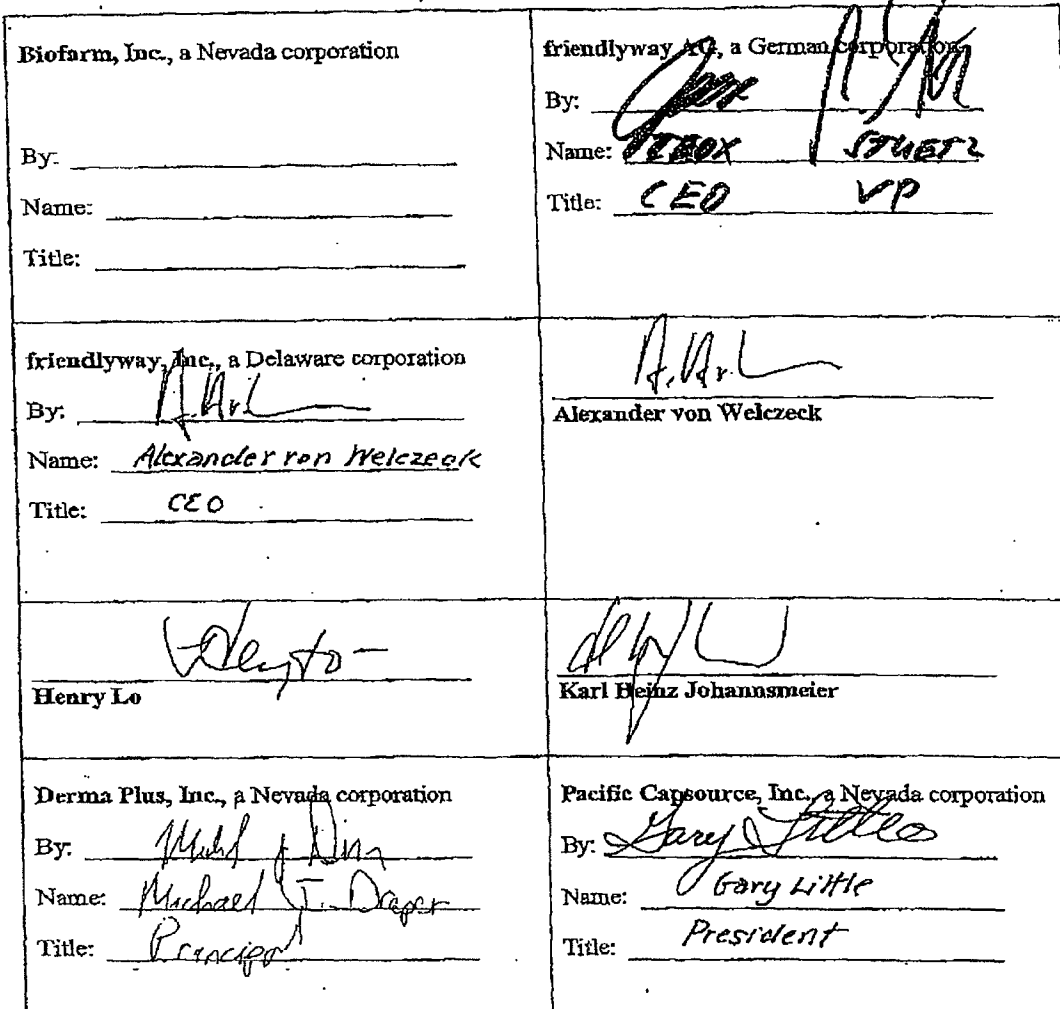 Biofarm, Inc., a Nevada corporation
By:
Name:
Title:
friendlyway AG, a German corporation
By:
Name: STUETZ
Title: CEO VP
friendlyway, Inc., a Delaware corporation
By:
Name: Alexander von Welczeck
Title: CEO
Alexander von Welczeck
Henry Lo
Karl Heinz Johannsmeier
Derma Plus, Inc., a Nevada corporation
By:
Name: Michael J. Draper
Title: Principal
Pacific Capsource, Inc., a Nevada corporation
By: Gary Little
Name: Gary Little
Title: President